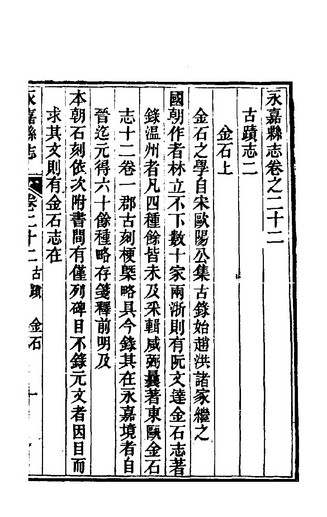 永嘉縣志卷之二十二
古蹟志二
金石上
金石之學自宋歐陽公集古錄始趙洪諸家繼之
國朝作者林立不下數十家兩浙則有阮文達金石志著
錄温州者凡四種餘皆未及采輯戚弼曩著東甌金石
志十二卷一郡古刻梗槩略具今錄其在永嘉境者自
晉迄元得六十餘種略存箋釋前明及
本朝石刻依次附書間有僅列碑目不錄元文者因目而
求其文則有金石志在
永嘉縣志
卷二十二
古蹟
金石
一